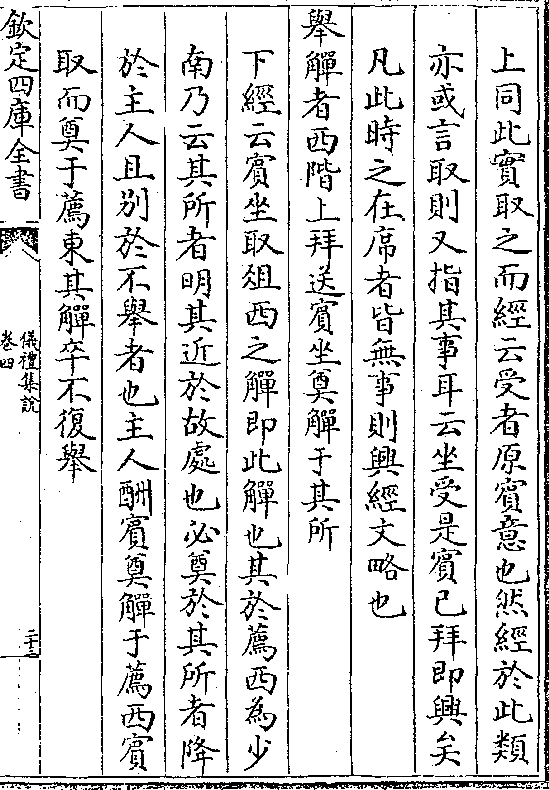 上同此實取之而經云受者原賓意也然經於此類
亦或言取則又指其事耳云坐受是賓已拜即興矣
凡此時之在席者皆無事則興經文略也
舉觶者西階上拜送賓坐奠觶于其所
下經云賓坐取俎西之觶即此觶也其於薦西為少
南乃云其所者明其近於故處也必奠於其所者降
於主人且別於不舉者也主人酬賓奠觶于薦西賓
取而奠于薦東其觶卒不復舉
欽定四庫全書
儀禮集說
卷四
二十三